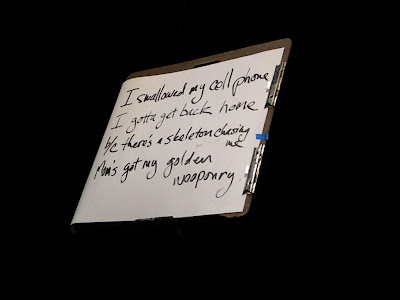 I swallowed my cell phone
I gotta get back home
b/c there's a skeleton chasing
me
Mom's got my golden
weaponry.